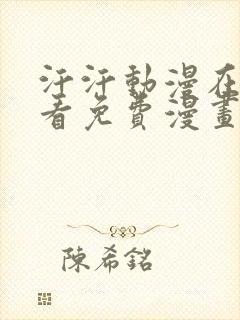 汗汗動漫在
看免費漫畫
陳希銘